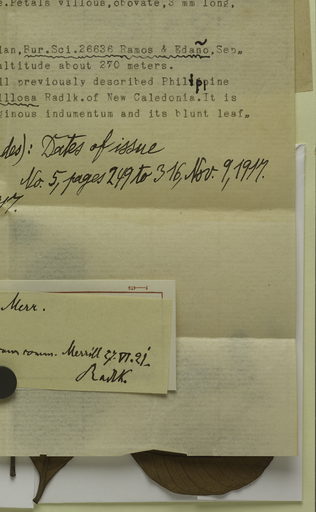 e.Petals villous,obovate,3 mm long,
lan,Bur.Sci.26636 Ramos & Edaño,Sep-
altitude about 270 meters.
ll previously described Philippine
illosa Radlk.of New Caledonia.It is
ginous indumentum and its blunt leaf-
des): Dates of issue
No. 5, pages 249 to 316, Nov. 9, 1917.
17.
Merr.
comm. Merrill 27.VI.21
Radlk.